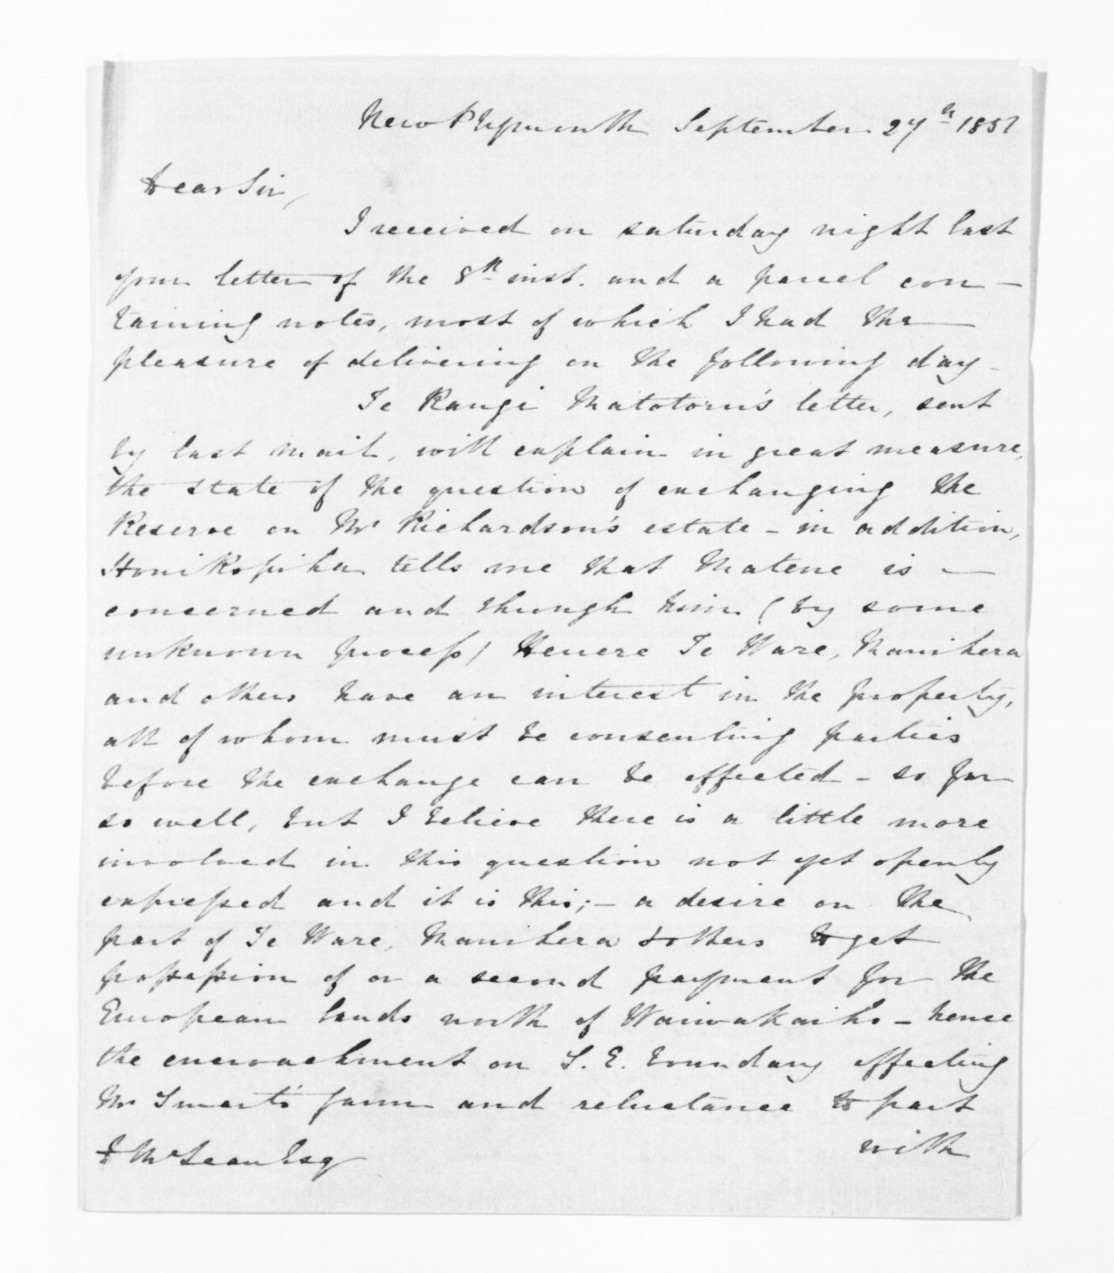 New Plymouth September 27th 1851
Dear Sir,
I received on saturday night last
your letter of the 8th inst. and a parcel con-
taining notes, most of which I had the
pleasure of delivering on the following day.
Te Rangi Matotoru's letter, sent
by last mail, will explain in great measure,
the state of the question of exchanging the
Reserve on Mr Richardson's estate - in addition,
HoniRopiha tells me that Matene is -
concerned and through him (by some
unknown process) Henere Te Ware, Manihera
and others have an interest in the property,
all of whom must be consenting parties
before the exchange can be effected - so far
so well, but I believe there is a little more
involved in this question not yet openly
expressed and it is this; - a desire on the
part of Te Ware, Manihera & others to get
possession of or a second payment for the
European lands north of Waiwakaiho - hence
the encroachment on S. E. boundary affecting
Mr Smart's farm and reluctance to part
with
D McLean Esq